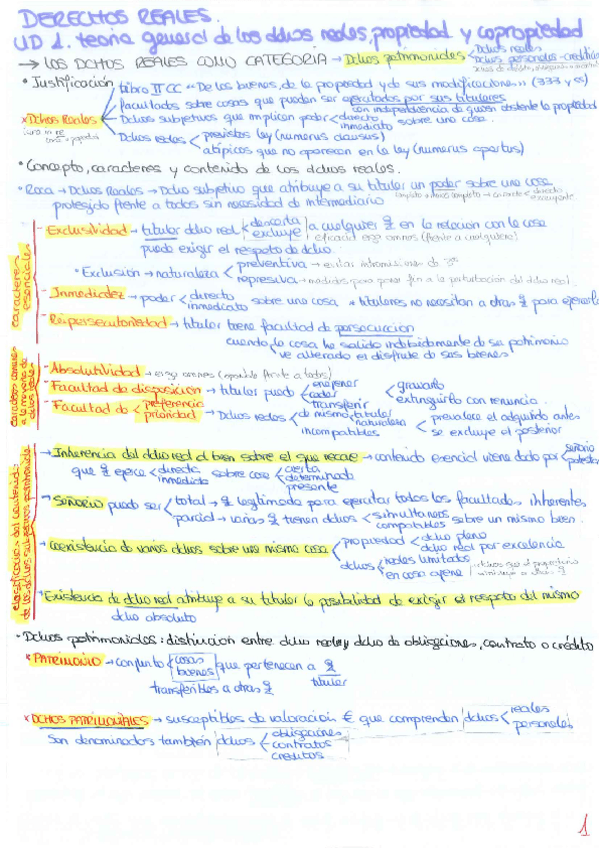 DERECHOS REALES.
UD 1. teoría general de los dchos reales, propiedad y copropiedad
→ LOS DCHOS REALES COMO CATEGORIA → Dchos patrimoniales < Dchos reales
Dchos personales-crediticios
• Justificación
libro II CC "De los bienes, de la propiedad y de sus modificaciones" (333 y ss)
facultades sobre cosas que pueden ser ejercitados por sus titulares
con independencia de quien ostente la propiedad
* Dchos Reales
Dchos subjetivos que implican poder < directo inmediato sobre una cosa.
Dchos reales < previstos ley (numerus clausus)
atípicos que no aparecen en la ley (numerus apertus)
• Concepto, caracteres y contenido de los dchos reales.
• Roca → Dchos Reales → Dcho subjetivo que atribuye a su titular un poder sobre una cosa
protegido frente a todos sin necesidad de intermediario
caracteres esenciales
- Exclusividad → titular dcho real < descarta excluye a cualquier en la relación con la cosa
eficacia erga omnes (frente a cualquiera)
puede exigir el respeto de dcho
• Exclusión → naturaleza < preventiva → evitar intromisiones de 3º
represiva → medidas para poner fin a la perturbación del dcho real.
- Inmediatez → poder < directo inmediato sobre una cosa * titulares no necesitan a otras para ejercerlo
- Reipersecutoriedad → titular tiene facultad de persecución
cuando la cosa ha salido indebidamente de su patrimonio
ve alterado el disfrute de sus bienes
- Absolutividad → erga omnes (oponible frente a todos)
- Facultad de disposición → titular puede < enajenar ceder transferir < gravarlo
extinguirlo con renuncia.
- Facultad de < preferencia prioridad → Dchos reales < de mismo titular naturaleza incompatibles < prevalece el adquirido antes
se excluye el posterior
- Inherencia del dcho real al bien sobre el que recae → contenido esencial viene dado por < señorío
que ejerce < directa inmediata sobre cosa < cierta determinada presente
- SEÑORIO puede ser < total → legitimado para ejercitar todas las facultades inherentes
parcial → varias tienen dchos < simultaneos compatibles sobre un mismo bien.
- Coexistencia de varios dchos sobre una misma cosa < propiedad < dcho pleno
dcho real por excelencia
dchos < reales limitados
en cosa ajena
- Existencia de dcho real atribuye a su titular la posibilidad de exigir el respeto del mismo
dcho absoluto
• Dchos patrimoniales: distinción entre dcho real y dcho de obligaciones, contrato o crédito
* PATRIMONIO → conjunto < cosas bienes que pertenecen a
titular
transferibles a otras
* DCHOS PATRIMONIALES → susceptibles de valoración € que comprenden dchos < reales
personales
Son denominados también dchos < obligaciones
contratos
creditos
1